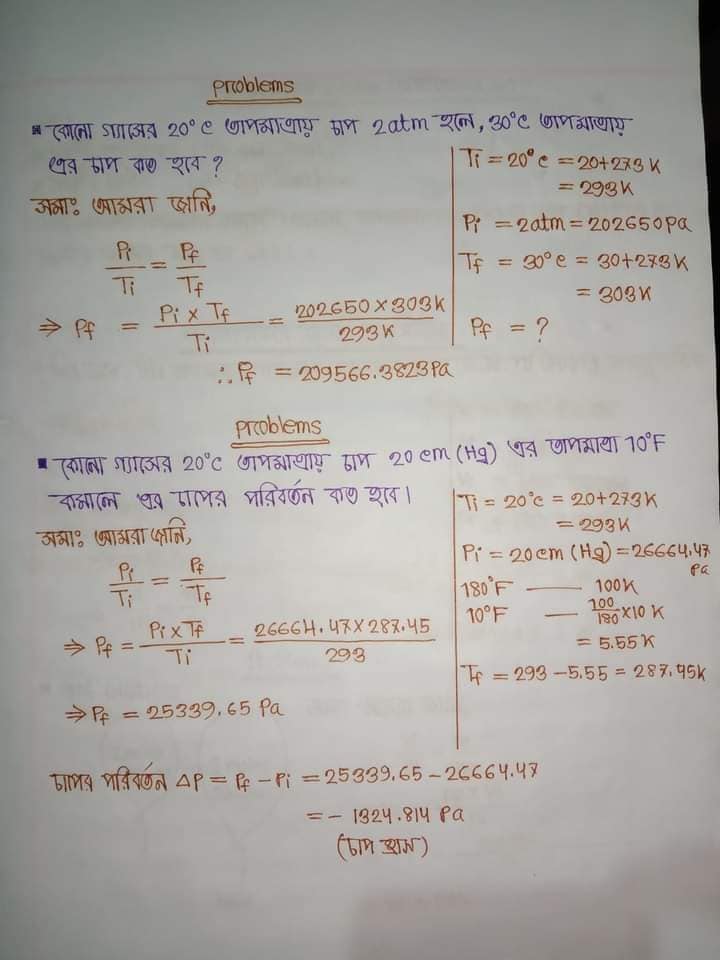 Problems
▪ কোনো গ্যাসের 20°C তাপমাত্রায় চাপ 2atm হলে, 30°C তাপমাত্রায়
এর চাপ কত হবে ?
সমাঃ আমরা জানি,
Pi/Ti = Pf/Tf
⇒ Pf = Pi × Tf/Ti = 202650 × 303K/293K
∴ Pf = 209566.3823Pa
Ti = 20°C = 20+273K
= 293K
Pi = 2atm = 202650Pa
Tf = 30°C = 30+273K
= 303K
Pf = ?
Problems
▪ কোনো গ্যাসের 20°C তাপমাত্রায় চাপ 20 cm (Hg) এর তাপমাত্রা 10°F
কমালে এর চাপের পরিবর্তন কত হবে।
সমাঃ আমরা জানি,
Pi/Ti = Pf/Tf
⇒ Pf = Pi × Tf/Ti = 26664.47 × 287.45/293
⇒ Pf = 25339.65 Pa
Ti = 20°C = 20+273K
= 293K
Pi = 20cm (Hg) = 26664.47
Pa
180°F — 100K
10°F — 100/180 ×10 K
= 5.55K
Tf = 293 - 5.55 = 287.45K
চাপের পরিবর্তন ΔP = Pf - Pi = 25339.65 - 26664.47
= - 1324.814 Pa
(চাপ হ্রাস)